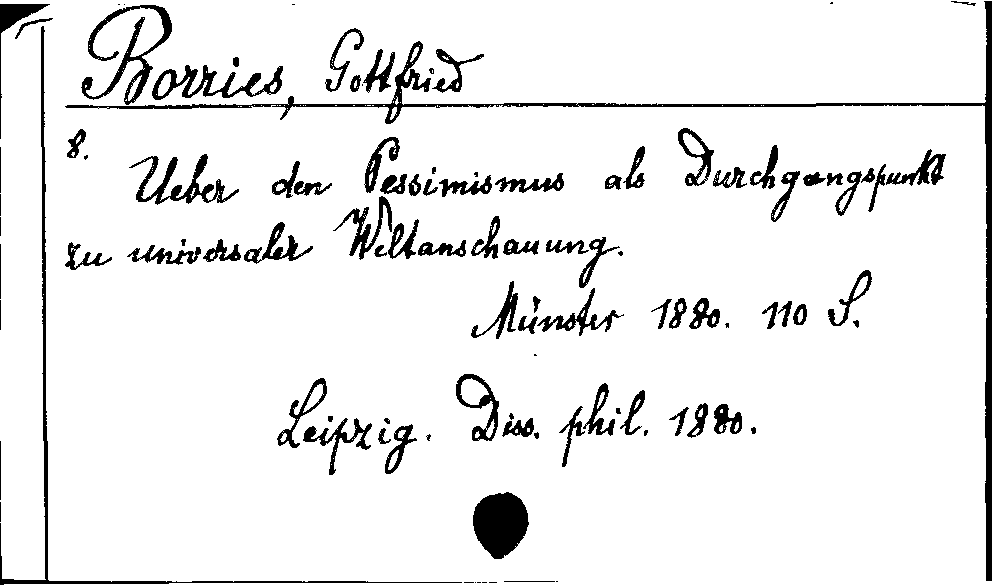 Borries, Gottfried
8.
Ueber den Pessimismus als Durchgangspunkt
zu universaler Weltanschauung.
Münster 1880. 110 S.
Leipzig. Diss. phil. 1880.